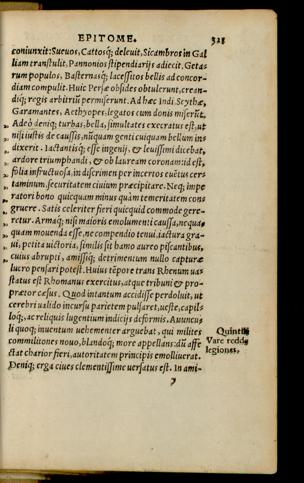 EPITOME. 321
coniunxit: Sueuos, Cattosq; deleuit, Sicambros in Gal
liam transtulit. Pannonios stipendiarijs adiecit. Geta-
rum populos, Basternasq; lacessitos bellis ad concor-
diam compulit. Huic Persæ obsides obtulerunt, crean-
diq; regis arbitriũ permiserunt. Ad hæc Indi, Scythæ,
Garamantes, Aethyopes, legatos cum donis miserũt.
Adeò deniq; turbas, bella, simultates execratus est, ut
nisi iustis de caussis, nũquam genti cuiquam bellum in-
dixerit. Iactantisq; esse ingenij, & leuissimi dicebat,
ardore triumphandi, & ob lauream coronam: id est,
folia infructuosa, in discrimen per incertos euẽtus cer-
taminum, securitatem ciuium præcipitare. Neq; impe
ratori bono quicquam minus quàm temeritatem cons
gruere. Satis celeriter fieri quicquid commode gere-
retur. Armaq; nisi maioris emolumenti caussa, nequa-
quam mouenda esse, ne compendio tenui, iactura gra-
ui, petita uictoria, similis sit hamo aureo piscantibus,
cuius abrupti, amissiq; detrimentum nullo capturæ
lucro pensari potest. Huius tẽpore trans Rhenum uas
status est Rhomanus exercitus, atque tribuni & pro-
prætor cæsus. Quod intantum accidisse perdoluit, ut
cerebri ualido incursu parietem pulsaret, ueste, capil-
loq;, ac reliquis lugentium indicijs deformis. Auuncu-
li quoq; inuentum uehementer arguebat, qui milites
commilitones nouo, blandoq; more appellans: dũ affe
ctat charior fieri, autoritatem principis emolliuerat.
Deniq; erga ciues clementissime uersatus est. In ami-
Quintili
Vare redde
legiones.